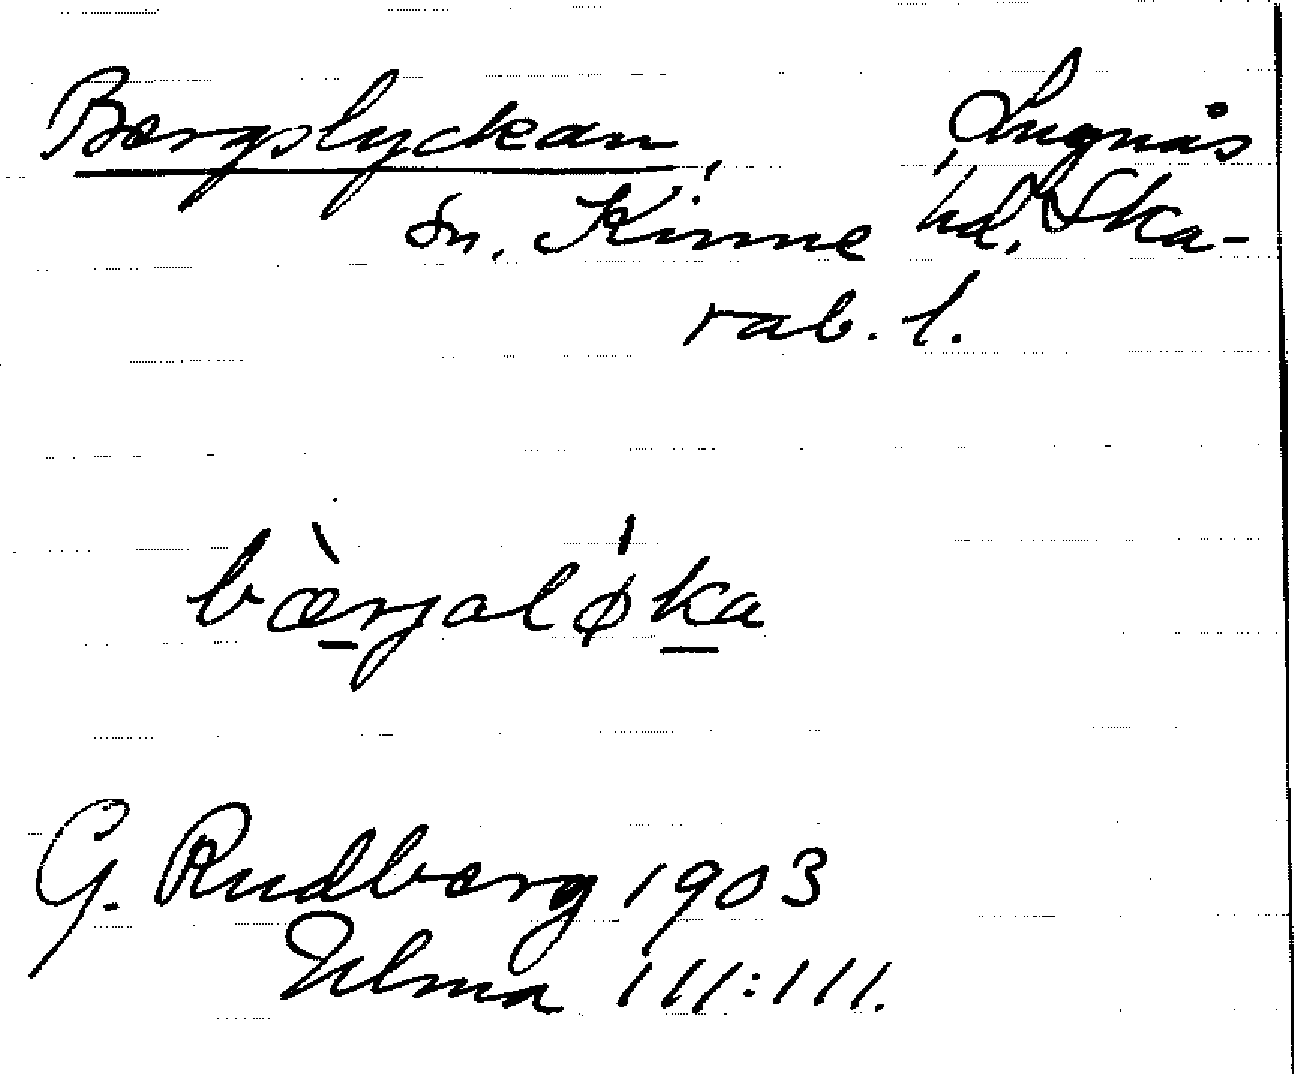 Bergslyckan, Lugnås
sn. Kinne hd, Ska-
rab. l.
bæ̀rjalǿka
G. Rudberg 1903
Ulma 111:111.